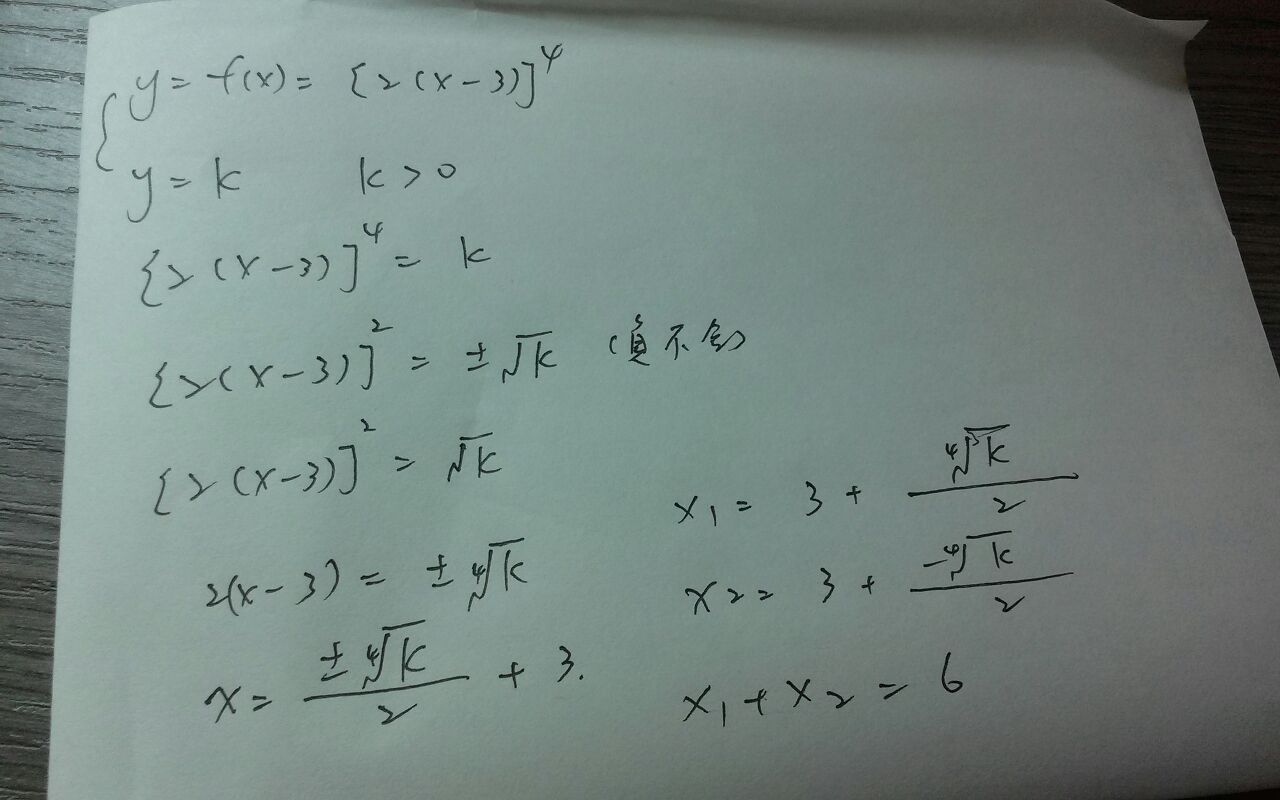 y = f(x) = [2(x-3)]^4
y = k k > 0
[2(x-3)]^4 = k
[2(x-3)]^2 = ±√k (負不合)
[2(x-3)]^2 = √k
2(x-3) = ±∜k
x = ±∜k/2 + 3.
x₁ = 3 + ∜k/2
x₂ = 3 + -∜k/2
x₁ + x₂ = 6